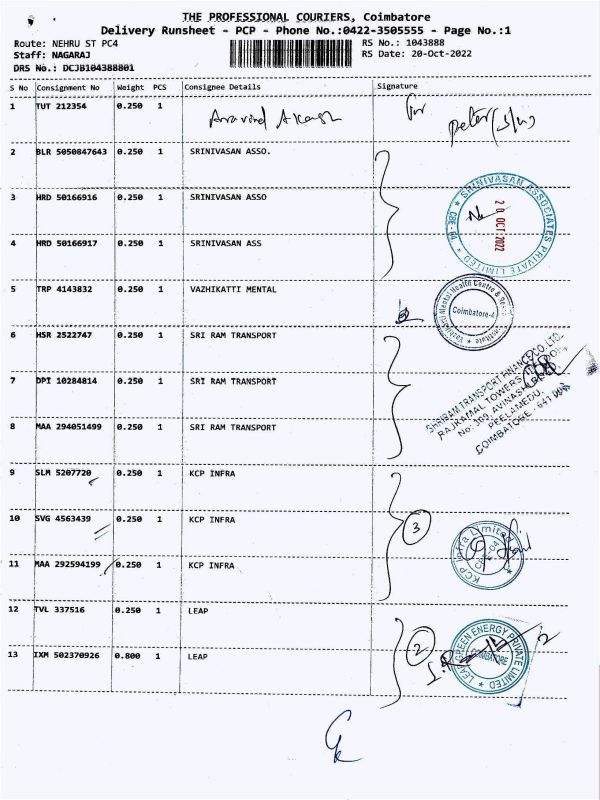 THE PROFESSIONAL COURIERS, Coimbatore
Delivery Runsheet - PCP - Phone No.:0422-3505555 - Page No.:1
Route: NEHRU ST PC4 RS No.: 1043888
Staff: NAGARAJ RS Date: 20-Oct-2022
DRS No.: DCJB104388801
S No Consignment No Weight PCS Consignee Details Signature
1 TUT 212354 0.250 1 Aravind Akash for Peter
2 BLR 5050847643 0.250 1 SRINIVASAN ASSO.
3 HRD 50166916 0.250 1 SRINIVASAN ASSO
SRINIVASAN ASSOCIATES PRIVATE LIMITED
20 OCT 2022
4 HRD 50166917 0.250 1 SRINIVASAN ASS
5 TRP 4143832 0.250 1 VAZHIKATTI MENTAL
Coimbatore-4
6 HSR 2522747 0.250 1 SRI RAM TRANSPORT
SHRIRAM TRANSPORT FINANCE CO. LTD.
RAJKAMAL TOWERS
No: 369, AVINASHI
PEELAMEDU,
COIMBATORE - 641
7 DPI 10284814 0.250 1 SRI RAM TRANSPORT
8 MAA 294051499 0.250 1 SRI RAM TRANSPORT
9 SLM 5207720 0.250 1 KCP INFRA
10 SVG 4563439 0.250 1 KCP INFRA 3
KCP Infra Limited
11 MAA 292594199 0.250 1 KCP INFRA
12 TVL 337516 0.250 1 LEAP 2
LEAP GREEN ENERGY PRIVATE LIMITED
COIMBATORE
13 IXM 502370926 0.800 1 LEAP